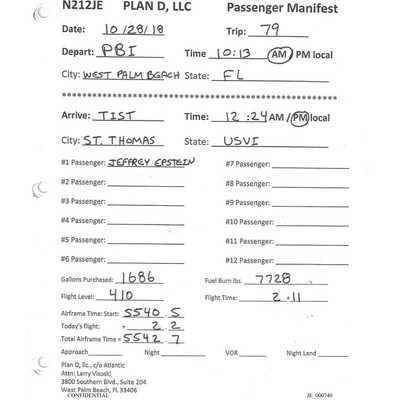 N212JE PLAN D, LLC Passenger Manifest
Date: 10/28/18 Trip: 79
Depart: PBI Time 10:13 AM / PM local
City: WEST PALM BEACH State: FL
Arrive: TIST Time: 12:24 AM / PM local
City: ST. THOMAS State: USVI
#1 Passenger: JEFFREY EPSTEIN #7 Passenger:
#2 Passenger: #8 Passenger:
#3 Passenger: #9 Passenger:
#4 Passenger: #10 Passenger:
#5 Passenger: #11 Passenger:
#6 Passenger: #12 Passenger:
Gallons Purchased: 1686 Fuel Burn lbs. 7728
Flight Level: 410 Flight Time: 2+11
Airframe Time: Start: 5540.5
Today's flight: + 2.2
Total Airframe Time = 5542.7
Approach Night VOR Night Land
Plan D, llc., c/o Atlantic
Attn: Larry Visoski
3800 Southern Blvd., Suite 204
West Palm Beach, FL 33406
CONFIDENTIAL JE_000740